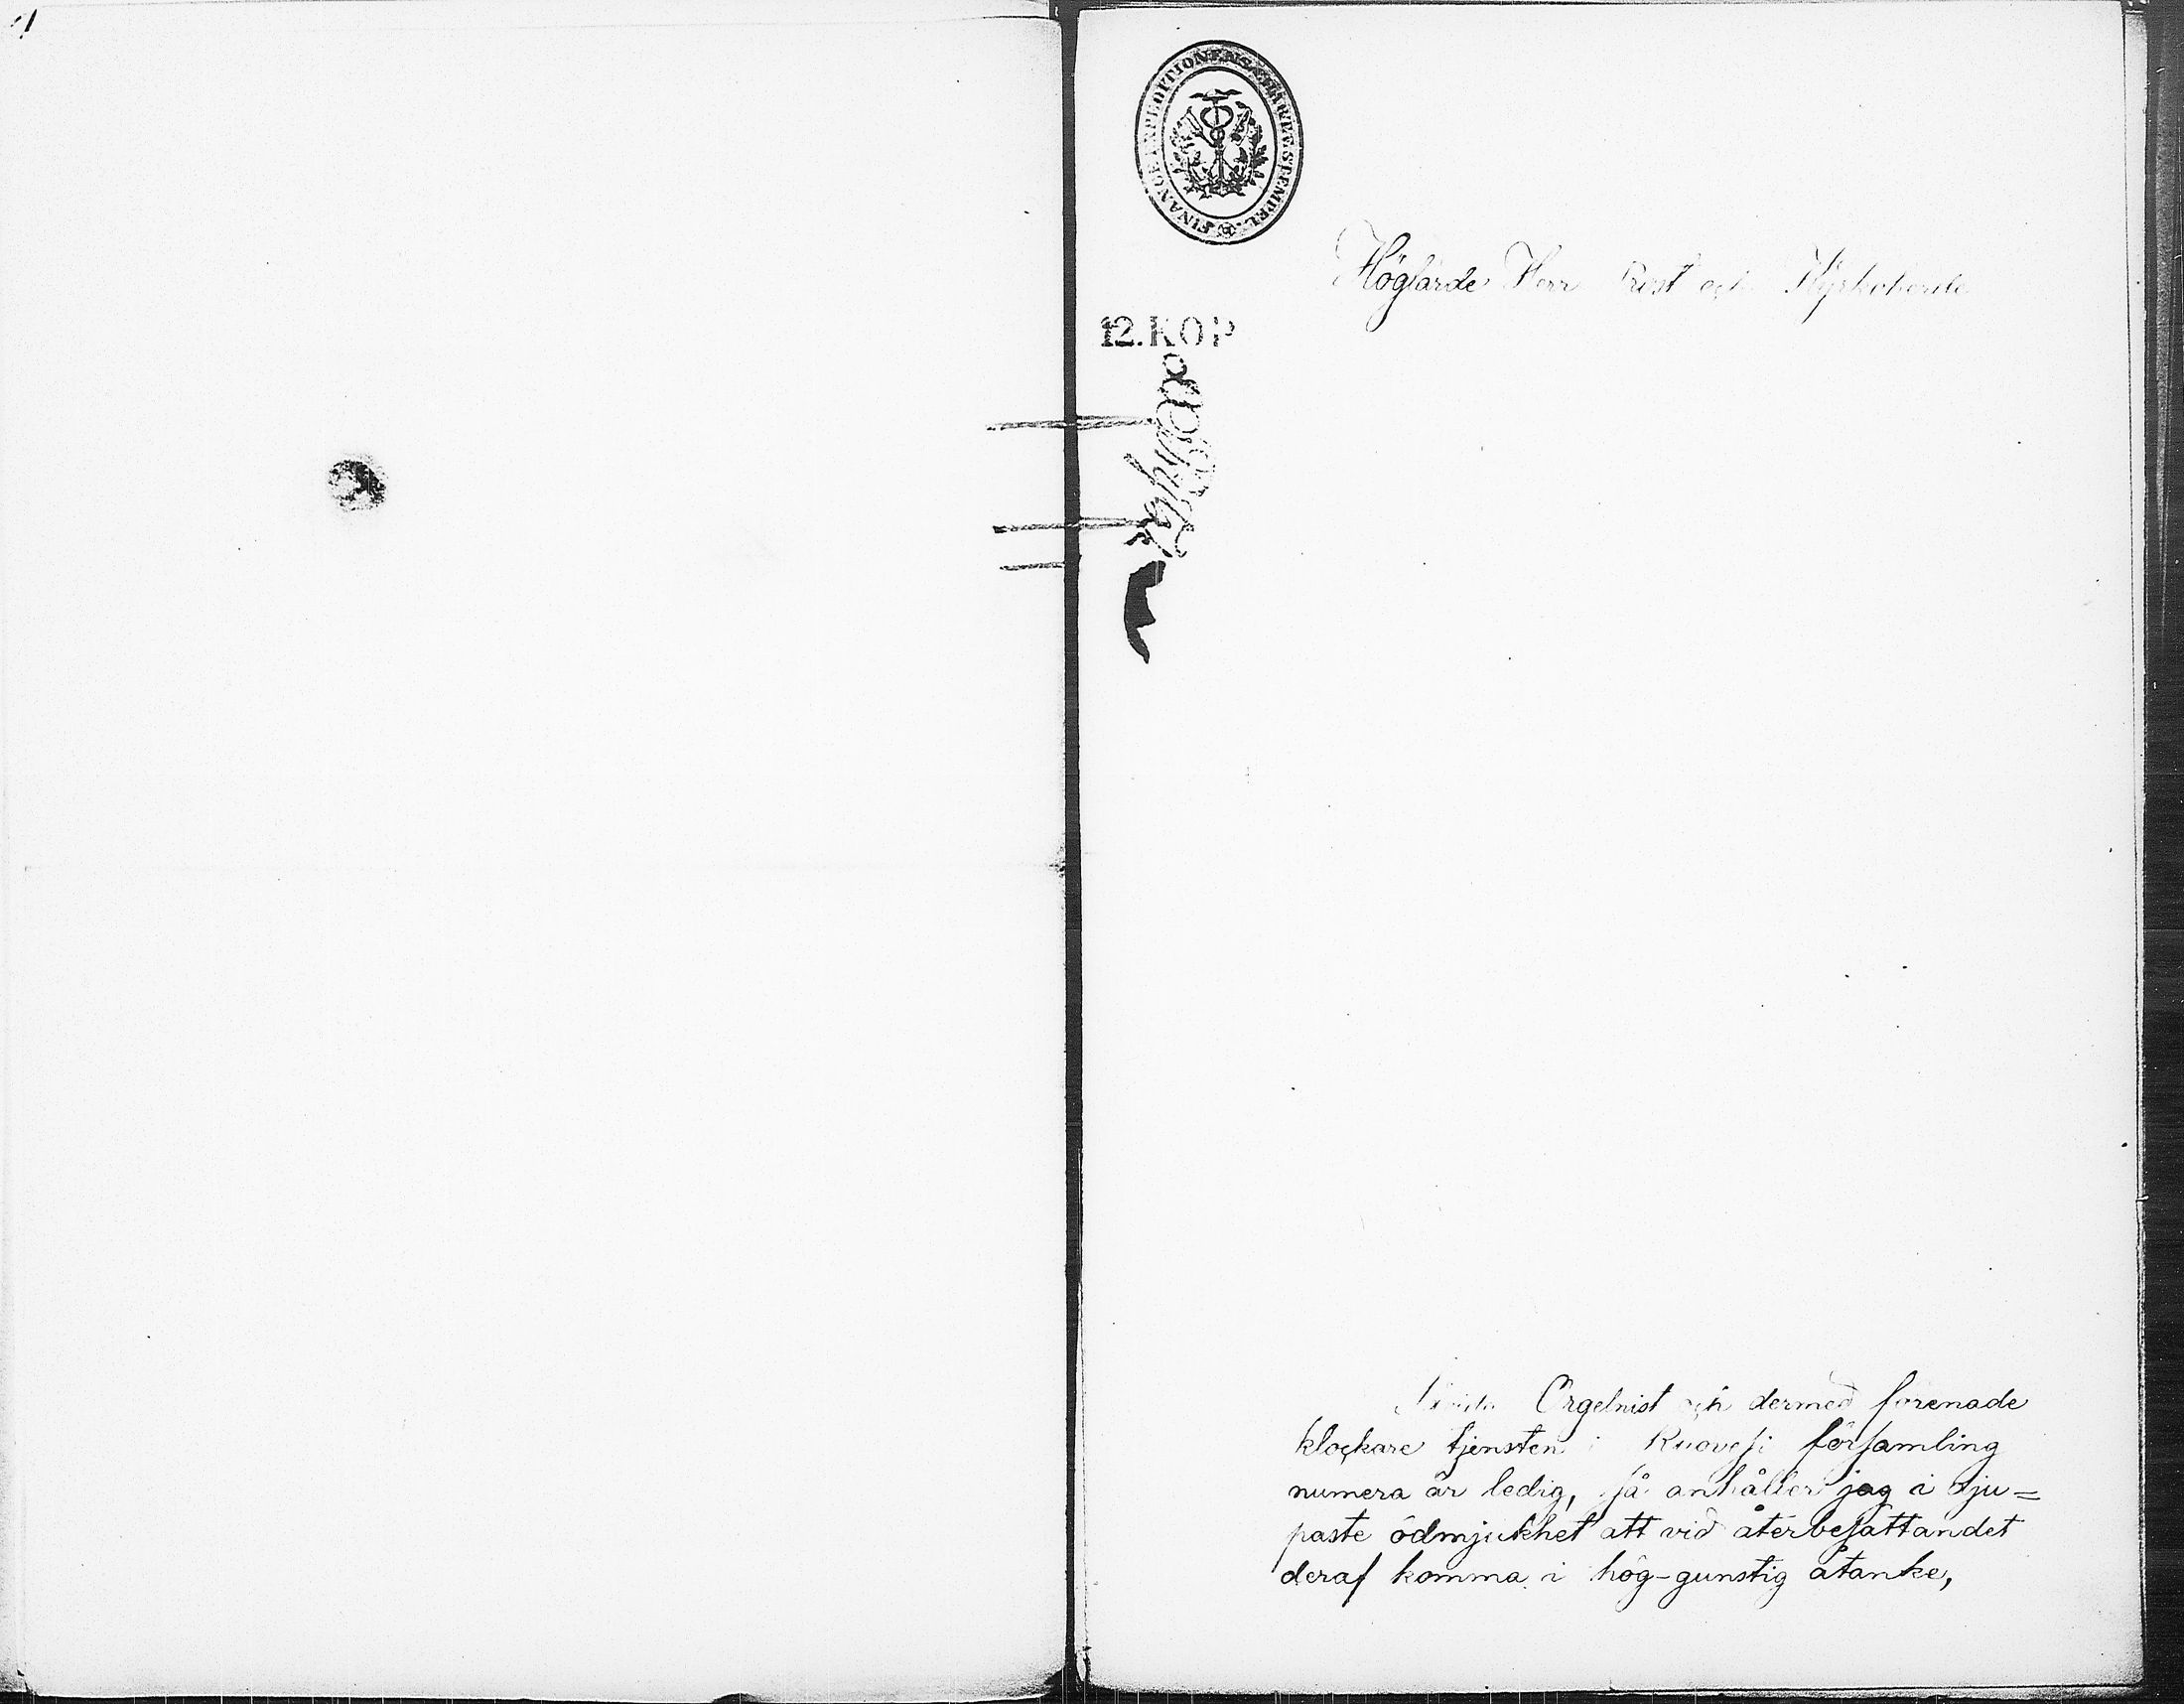 FINANCE EXPEDITIONENS STEMPEL.
Höglärde Herr Prost och Kyrkoherde
12.KOP
Orgelnist och dermed förenade
klockare tjensten i Ruovesi församling
numera är ledig, så anhåller jag i dju=
paste ödmjukhet att vid återbesättandet
deraf komma i hög-gunstig åtanke,